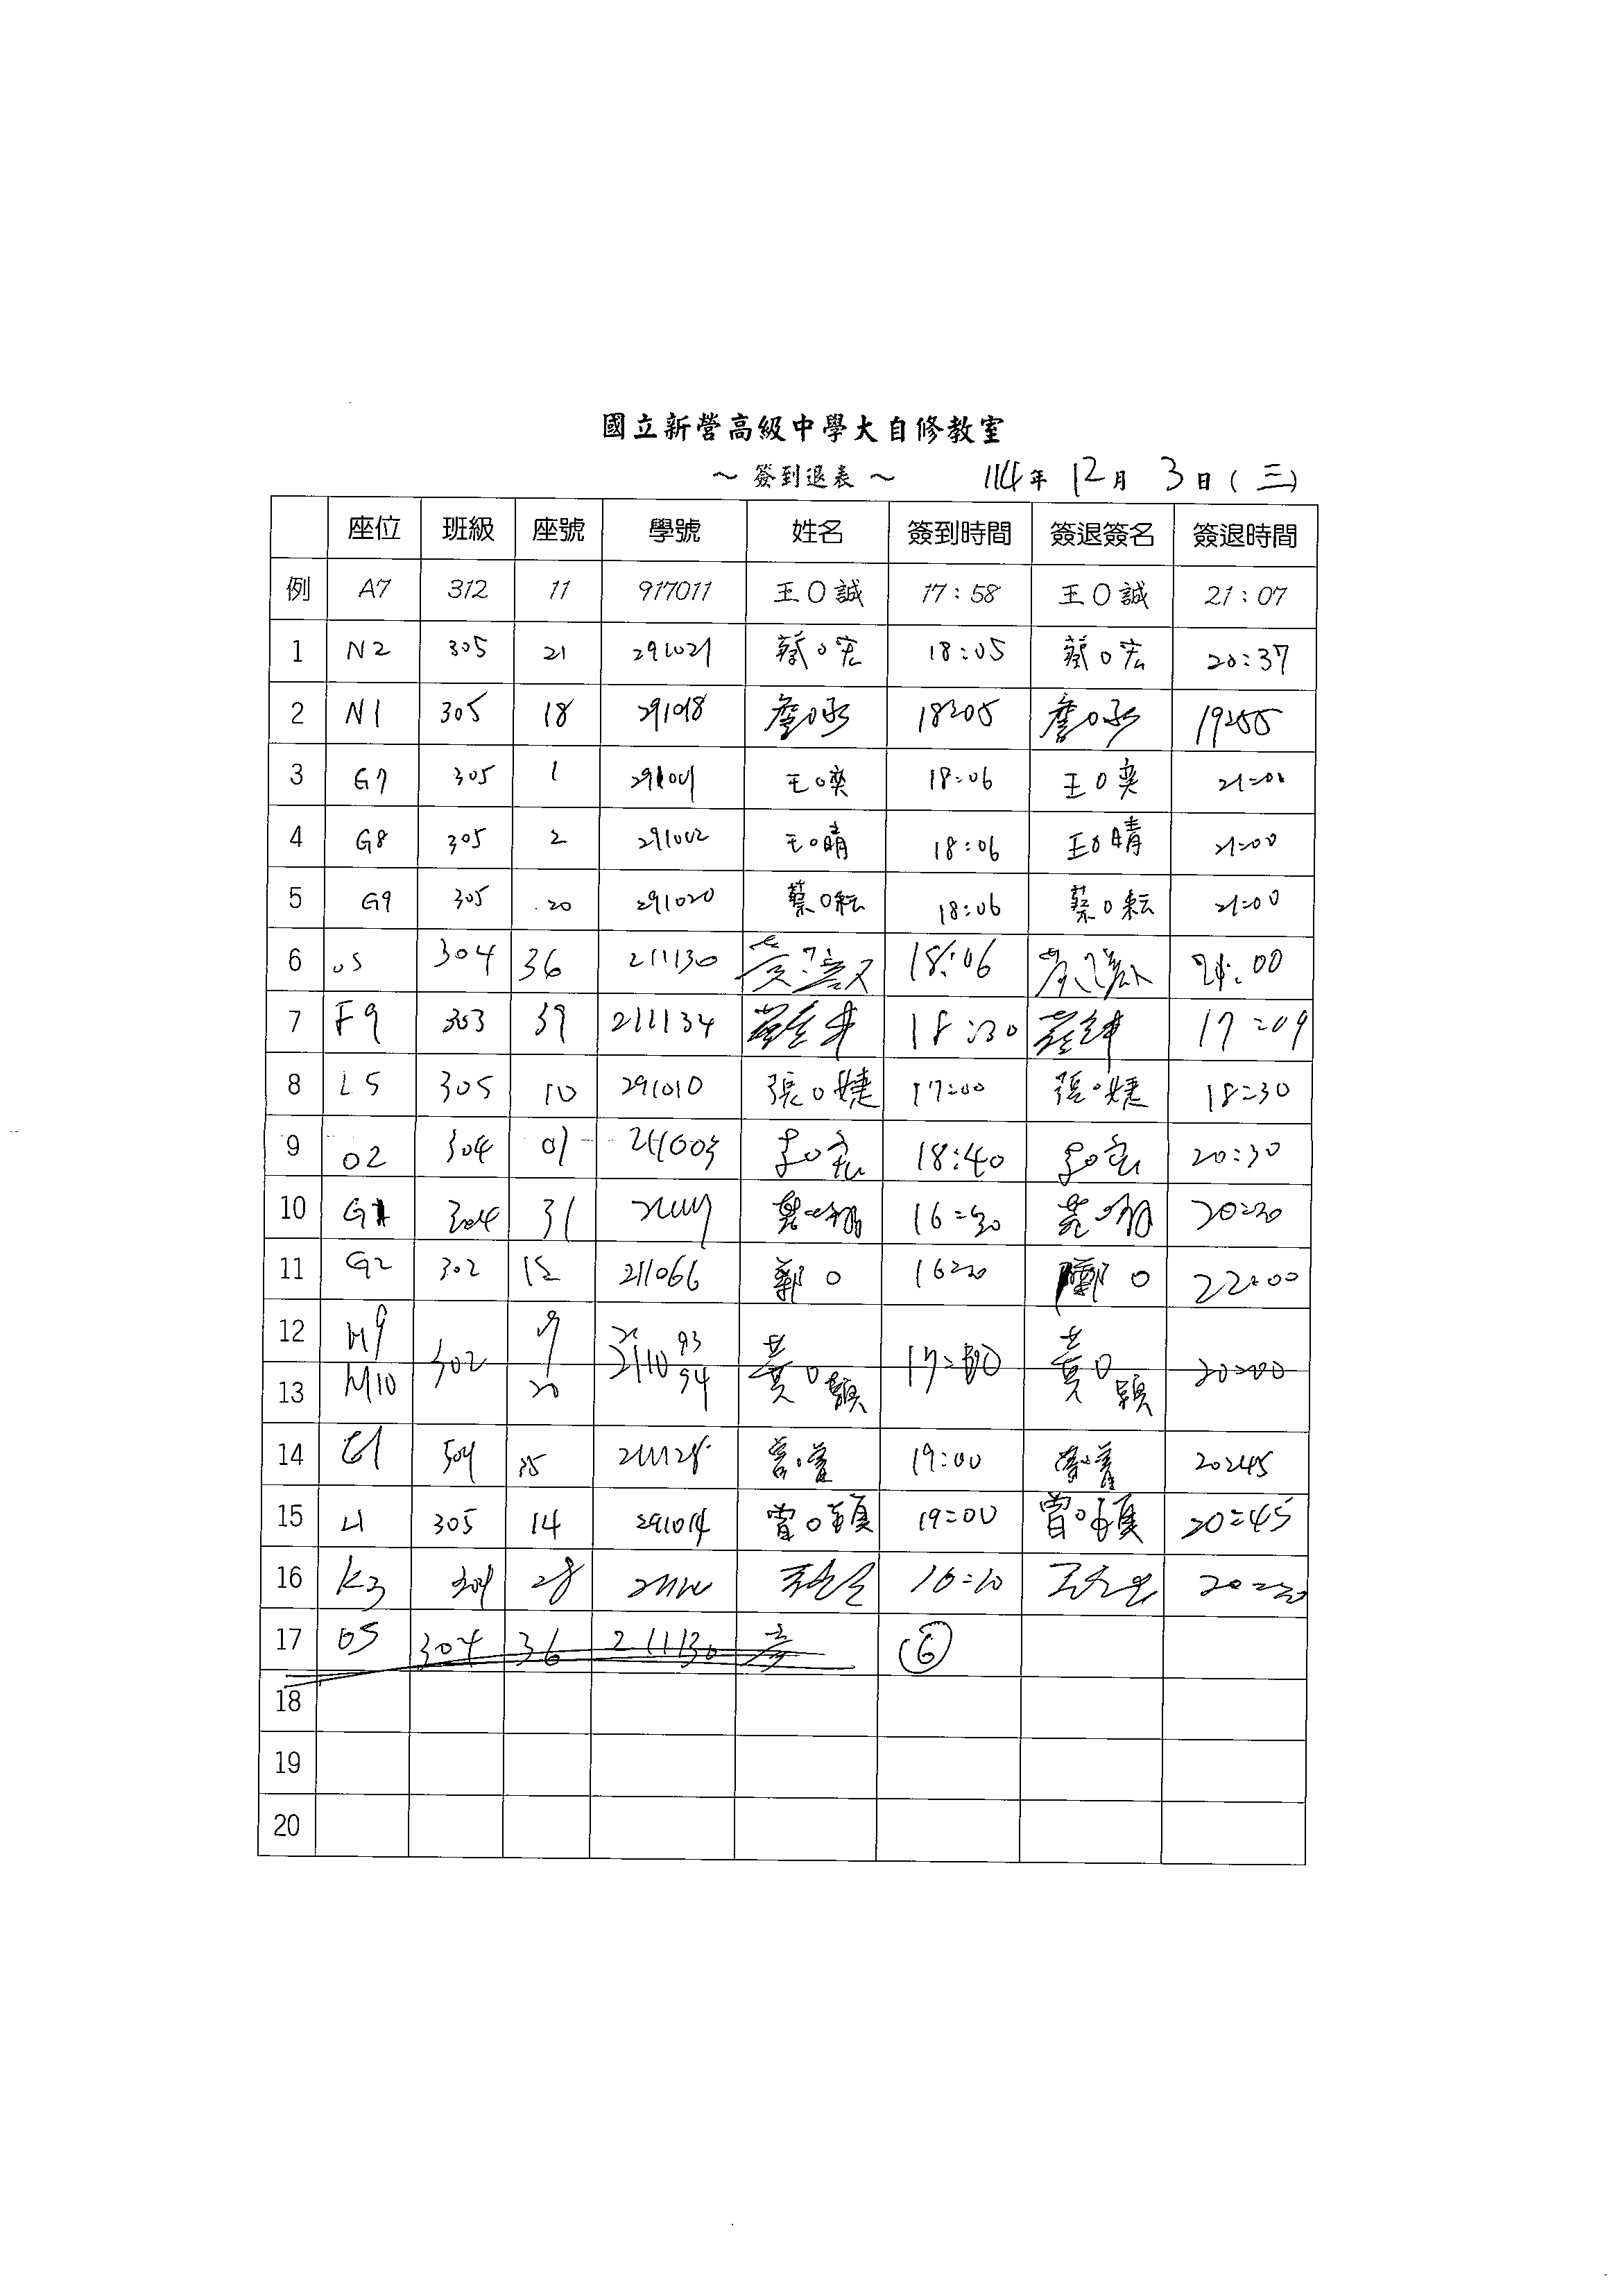 國立新營高級中學大自修教室
～ 簽到退表 ～ 114年 12月 3日 (三)
座位 班級 座號 學號 姓名 簽到時間 簽退簽名 簽退時間
例 A7 312 11 917011 王O誠 17:58 王O誠 21:07
1 N2 305 21 291021 蔡O宏 18:05 蔡O宏 20:37
2 N1 305 18 291018 詹O承 18:05 詹O承 19:55
3 G7 305 1 291001 王O奕 18:06 王O奕 21:00
4 G8 305 2 291002 王O晴 18:06 王O晴 21:00
5 G9 305 20 291020 蔡O耘 18:06 蔡O耘 21:00
6 05 304 36 211130 18:06 21:00
7 F9 303 39 211134 18:30 17:09
8 L5 305 10 291010 張O婕 17:00 張O婕 18:30
9 02 304 01 18:40 20:30
10 304 31 16:30 20:30
11 G2 302 12 211066 鄭O 16:30 鄭O 22:00
12 M9 302 19 93 黃O穎 17:00 黃O穎 20:00
13 M10 20 94
14 304 19:00 20:45
15 305 14 291014 曾O穎 19:00 曾O穎 20:45
16 K3 304 28 16:10 20:30
17 05 304 36 211130 6
18
19
20